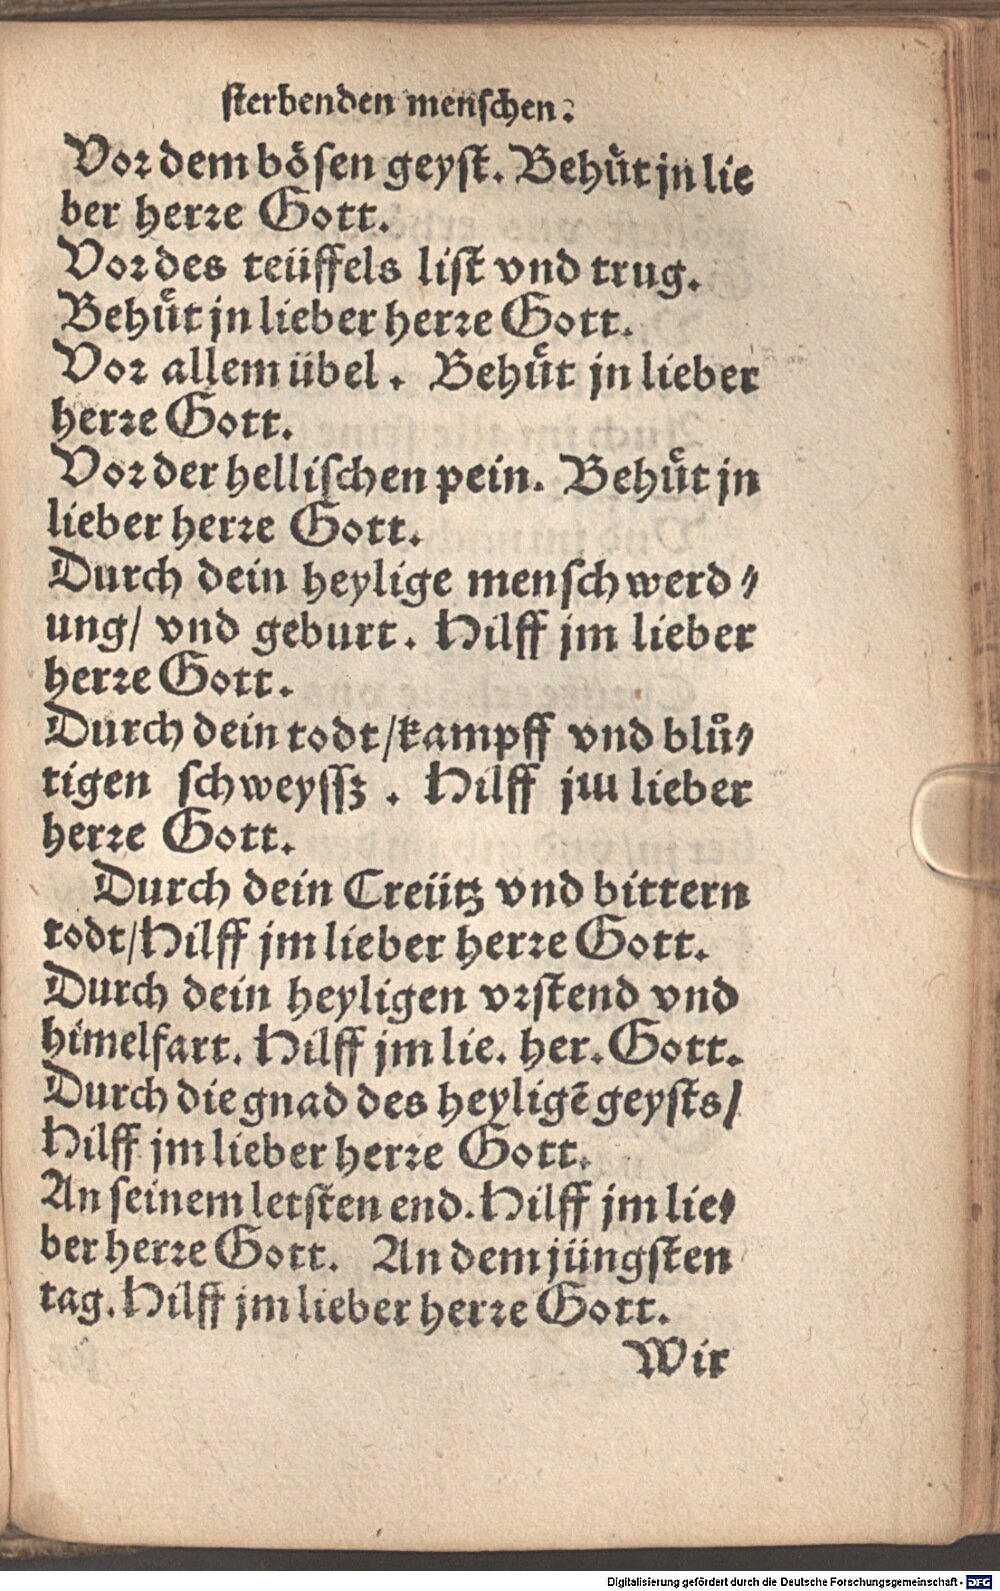 sterbenden menschen.
Vor dem bösen geyst. Behuͤt jn lie
ber herre Gott.
Vor des teüffels list vnd trug.
Behuͤt jn lieber herre Gott.
Vor allem übel. Behuͤt jn lieber
herre Gott.
Vor der hellischen pein. Behuͤt jn
lieber herre Gott.
Durch dein heylige menschwerd⸗
ung/ vnd geburt. Hilff jm lieber
herre Gott.
Durch dein todt/kampff vnd bluͦ⸗
tigen schweyssz. Hilff jm lieber
herre Gott.
Durch dein Creütz vnd bittern
todt/Hilff jm lieber herre Gott.
Durch dein heyligen vrstend vnd
himelfart. Hilff jm lie. her. Gott.
Durch die gnad des heyligē geysts/
Hilff jm lieber herre Gott.
An seinem letsten end. Hilff jm lie⸗
ber herre Gott. An dem jüngsten
tag. Hilff jm lieber herre Gott.
Wir
Digitalisierung gefördert durch die Deutsche Forschungsgemeinschaft - DFG